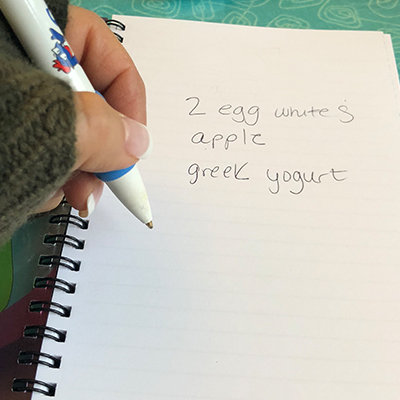 2 egg whites
apple
greek yogurt